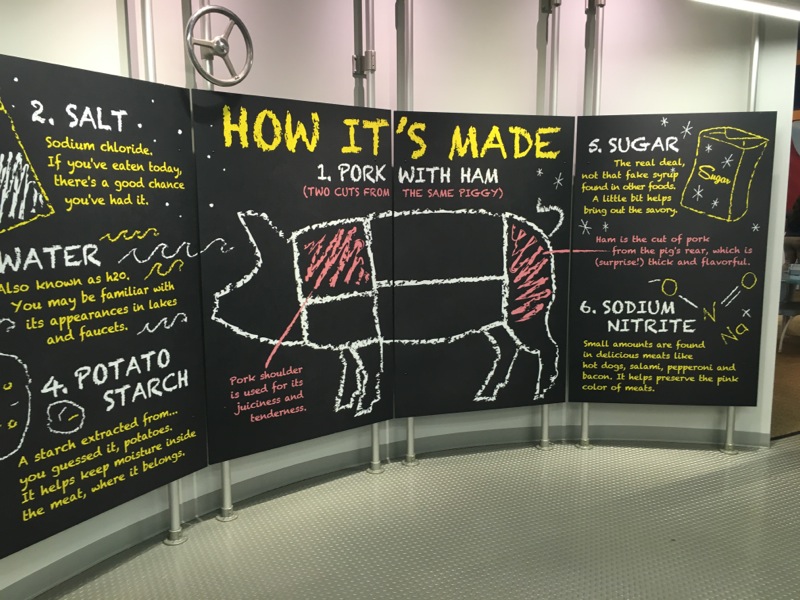 HOW IT'S MADE
1. PORK WITH HAM
(TWO CUTS FROM THE SAME PIGGY)
Pork shoulder
is used for its
juiciness and
tenderness.
Ham is the cut of pork
from the pig's rear, which is
(surprise!) thick and flavorful.
2. SALT
Sodium chloride.
If you've eaten today,
there's a good chance
you've had it.
WATER
Also known as h2o.
You may be familiar with
its appearances in lakes
and faucets.
4. POTATO
STARCH
A starch extracted from...
you guessed it, potatoes.
It helps keep moisture inside
the meat, where it belongs.
5. SUGAR
The real deal,
not that fake syrup
found in other foods.
A little bit helps
bring out the savory.
Sugar
6. SODIUM
NITRITE
Small amounts are found
in delicious meats like
hot dogs, salami, pepperoni and
bacon. It helps preserve the pink
color of meats.
O
N
O
Na